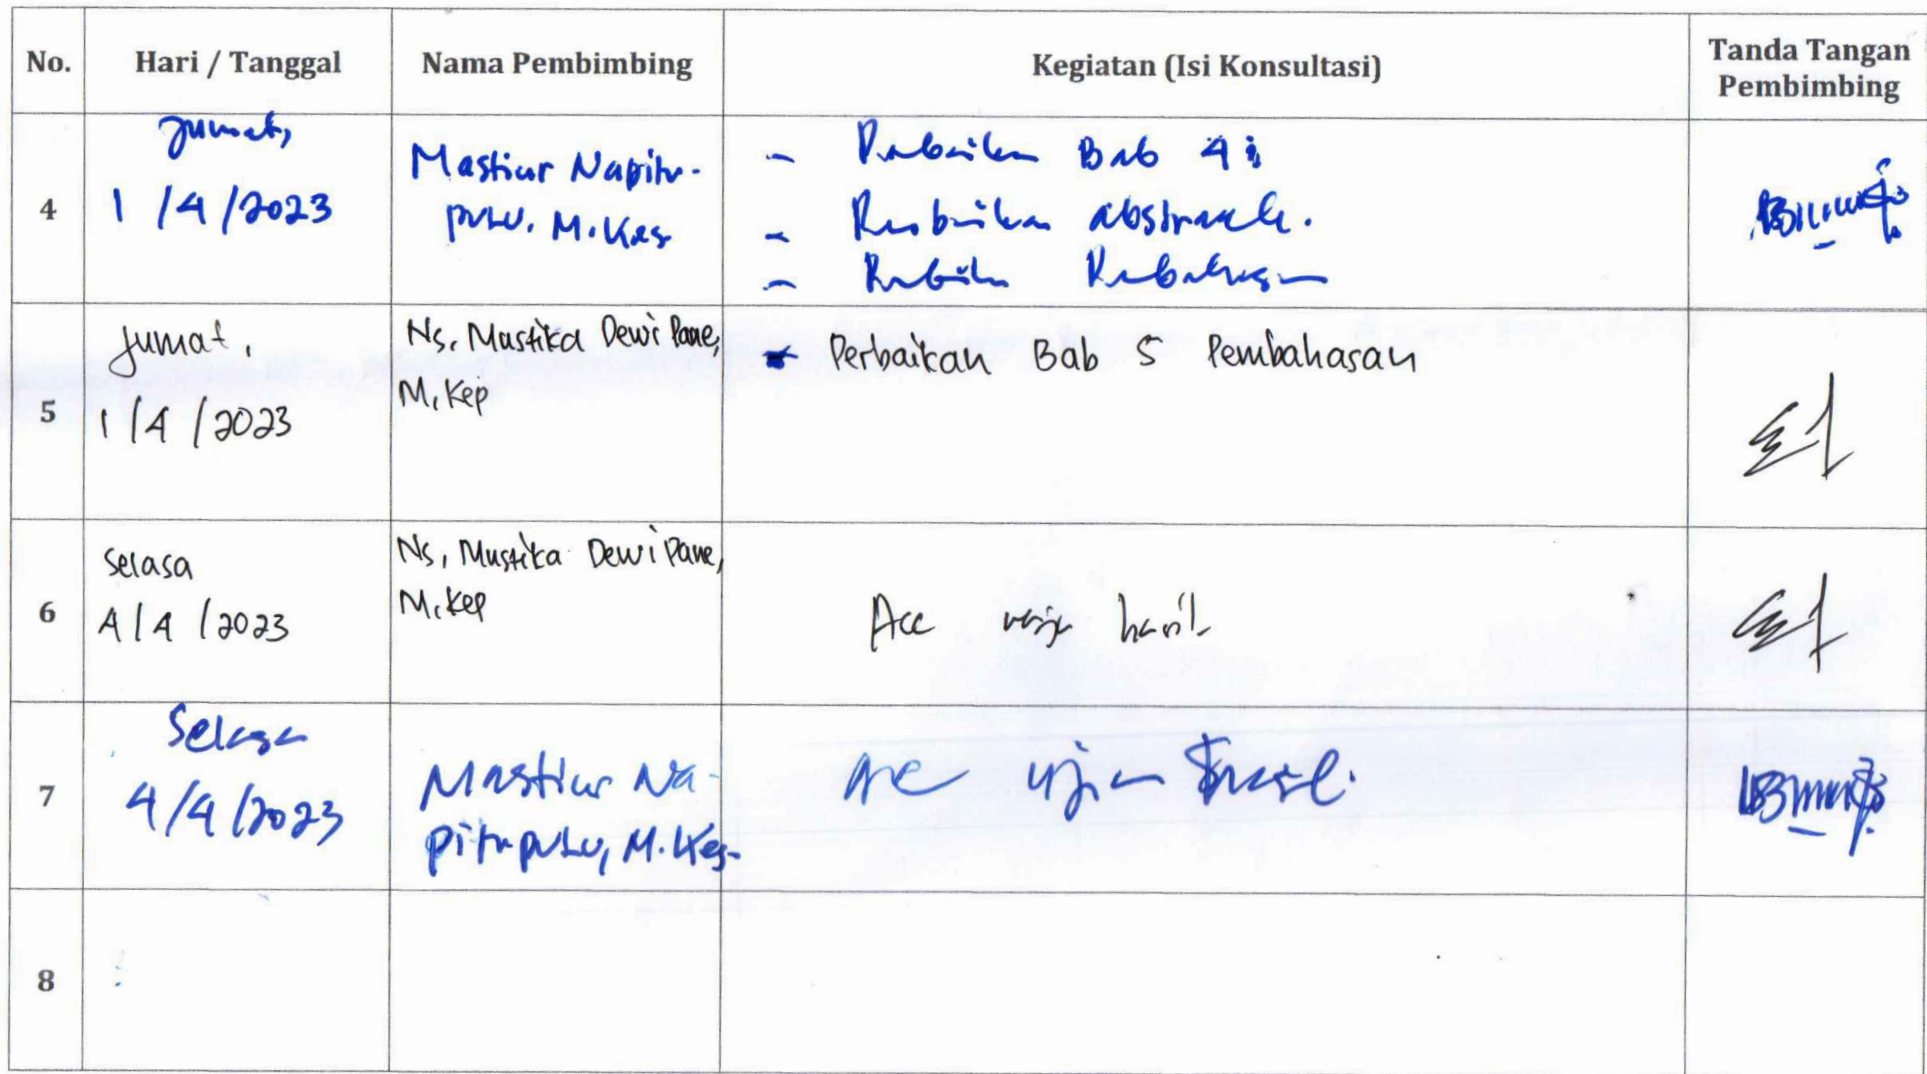 No. Hari / Tanggal Nama Pembimbing Kegiatan (Isi Konsultasi) Tanda Tangan Pembimbing
4
Jumat,
1/4/2023
Mastiur Napitu-
pulu. M.Kes
- Perbaikan Bab 4
- Perbaikan abstrack.
- Perbaikan Pembahasan
5
Jumat,
1/4/2023
Ns. Mustika Dewi Pane,
M.Kep
Perbaikan Bab 5 Pembahasan
6
Selasa
4/4/2023
Ns, Mustika Dewi Pane,
M.Kep
Acc ujian hasil
7
Selasa
4/4/2023
Mastiur Na-
pitupulu, M.Kes-
Acc ujian hasil.
8